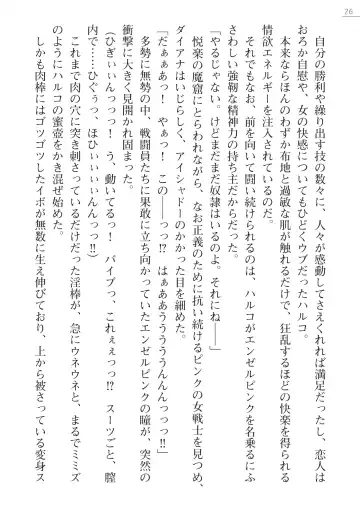 26
自分の勝利や繰り出す技の数々に、人々が感動してさえくれれば満足だったし、恋人は
おろか自慰や、女の快感についてもひどくウブだったハルコ。
本来ならほんのわずか布地と過敏な肌が触れるだけで、狂乱するほどの快楽を得られる
情欲エネルギーを注入されているのだ。
それでもなお、前を向いて闘い続けられるのは、ハルコがエンゼルピンクを名乗るにふ
さわしい強靭な精神力の持ち主だからだった。
「やるじゃない。けどまだまだ奴隷はいるのよ。それにね――」
悦楽の魔窟にとらわれながら、なお正義のために抗い続けるピンクの女戦士を見つめ、
ダイアナはいじらしく、アイシャドーのかかった目を細めた。
「だぁぁあっ！　やぁっ！　この――っっ⁉　はぁああうううんんんっっっ‼」
多勢に無勢の中、戦闘員たちに果敢に立ち向かっていたエンゼルピンクの瞳が、突然の
衝撃に大きく見開かれ固まった。
（ひぎぃぃんっっっ！　う、動いてるっ！　バイブっ、これぇぇっっ⁉　スーツごと、膣
内で……っっ！　ひぐぅっっ、ほひぃぃぃんんっっ‼）
これまで肉の穴に突き刺さっているだけだった淫棒が、急にウネウネと、まるでミミズ
のようにハルコの蜜壺をかき混ぜ始めた。
しかも肉棒にはゴツゴツしたイボが無数に生え伸びており、上から被さっている変身ス